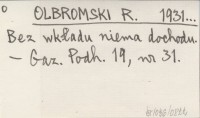 OLBROMSKI R. 1931...
Bez wkładu niema dochodu.
— Gaz. Podh. 19, nr 31.